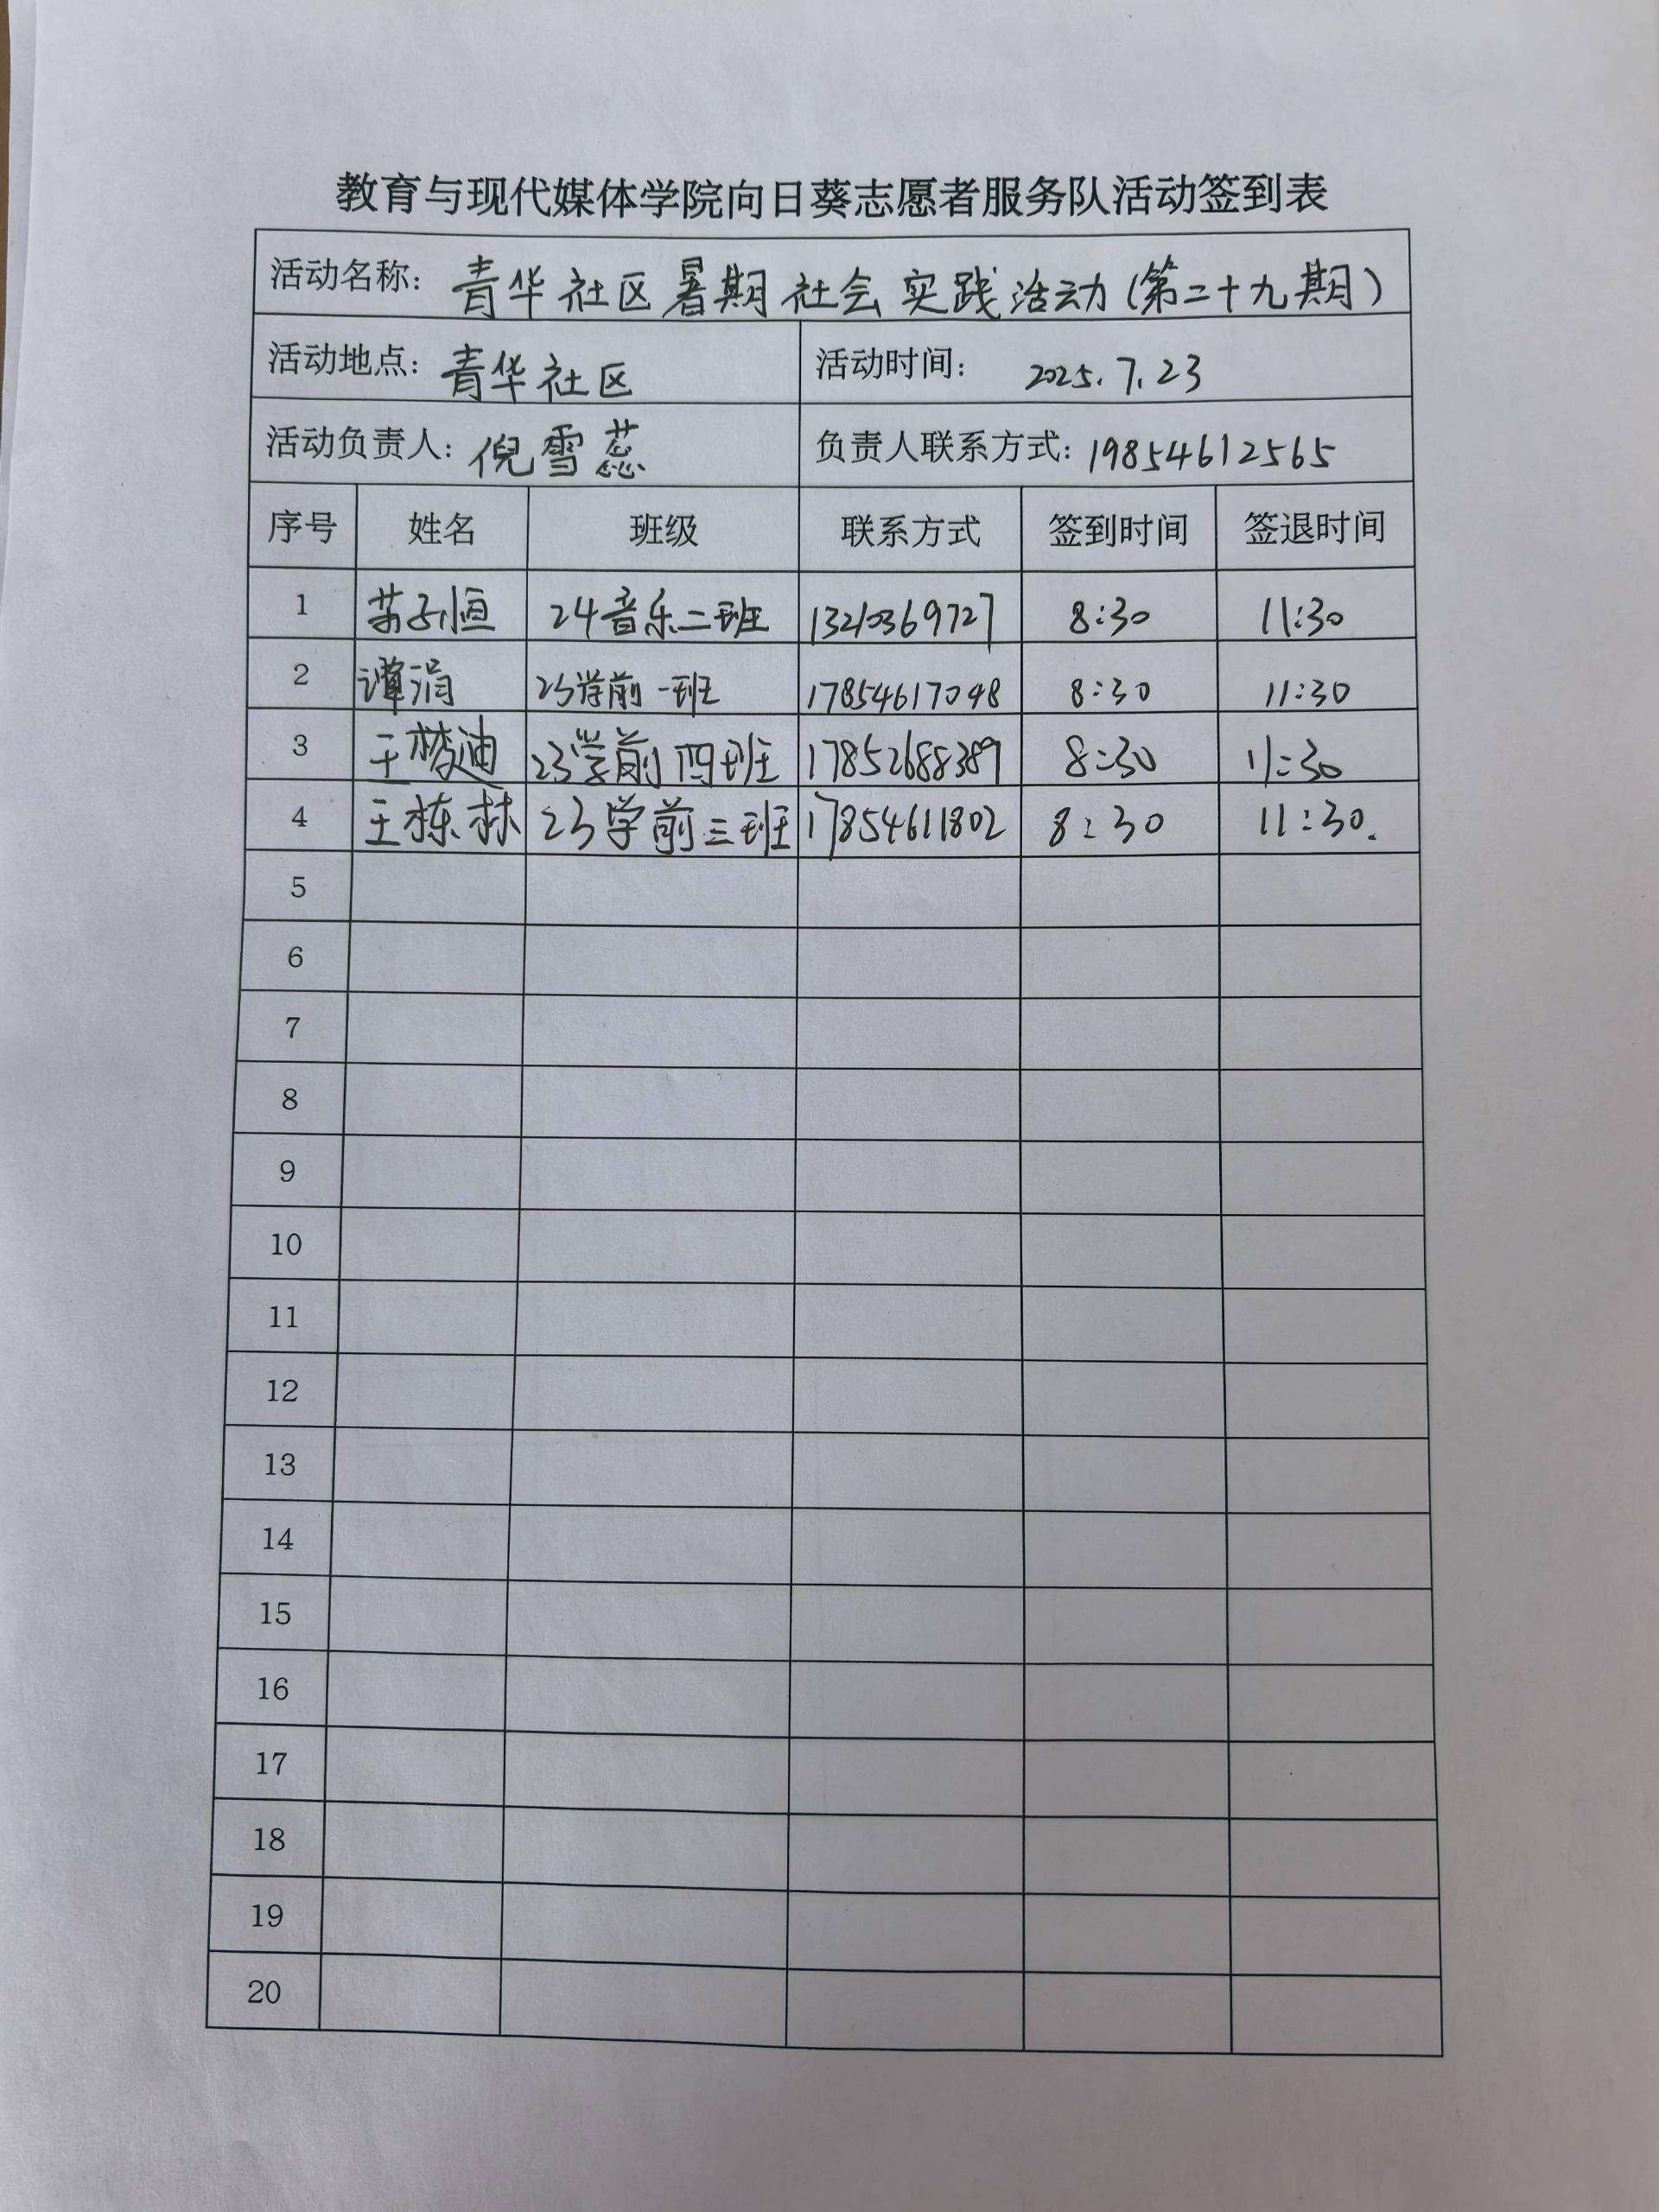 教育与现代媒体学院向日葵志愿者服务队活动签到表
活动名称: 青华社区暑期社会实践活动(第二十九期)
活动地点: 青华社区 活动时间: 2025.7.23
活动负责人: 倪雪蕊 负责人联系方式: 19854612565
序号 姓名 班级 联系方式 签到时间 签退时间
1 苏子恒 24音乐二班 13210369727 8:30 11:30
2 谭涓 23学前一班 17854617048 8:30 11:30
3 王梦迪 23学前四班 17852688389 8:30 11:30
4 王栋林 23学前三班 17854611802 8:30 11:30.
5
6
7
8
9
10
11
12
13
14
15
16
17
18
19
20